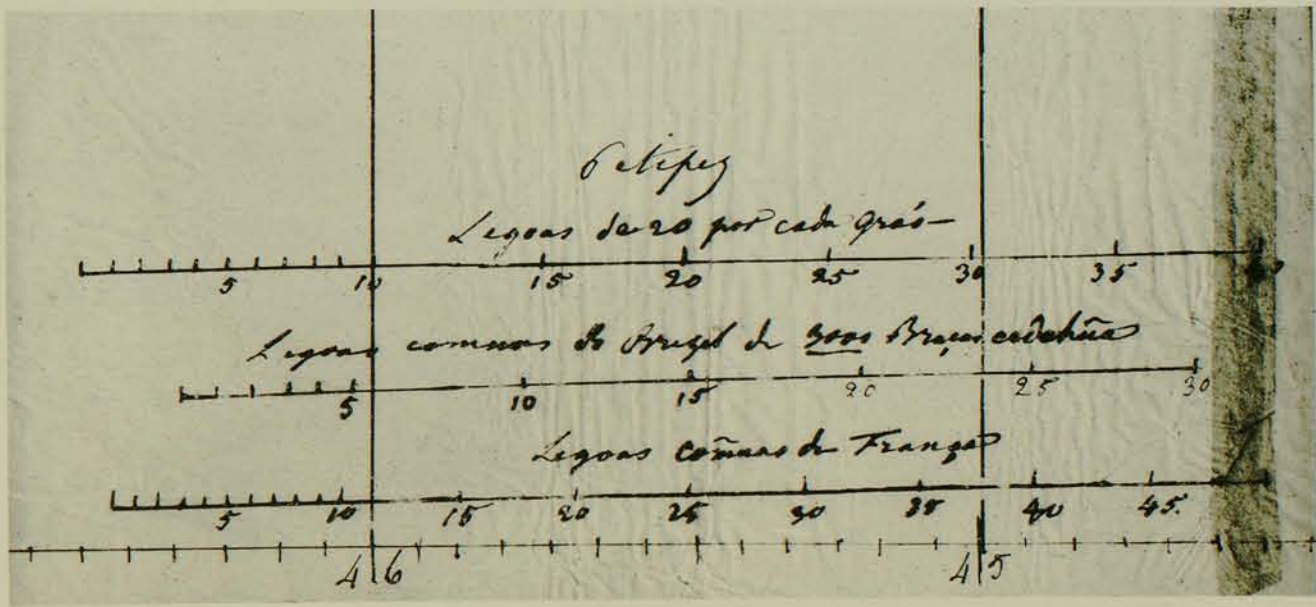 Petipez
Legoas de 20 por cada Gráo
5 10 15 20 25 30 35 40
Legoas comuas do Brezil de 3000 Braças
5 10 15 20 25 30
Legoas comũas de França
5 10 15 20 25 30 35 40 45
46 45